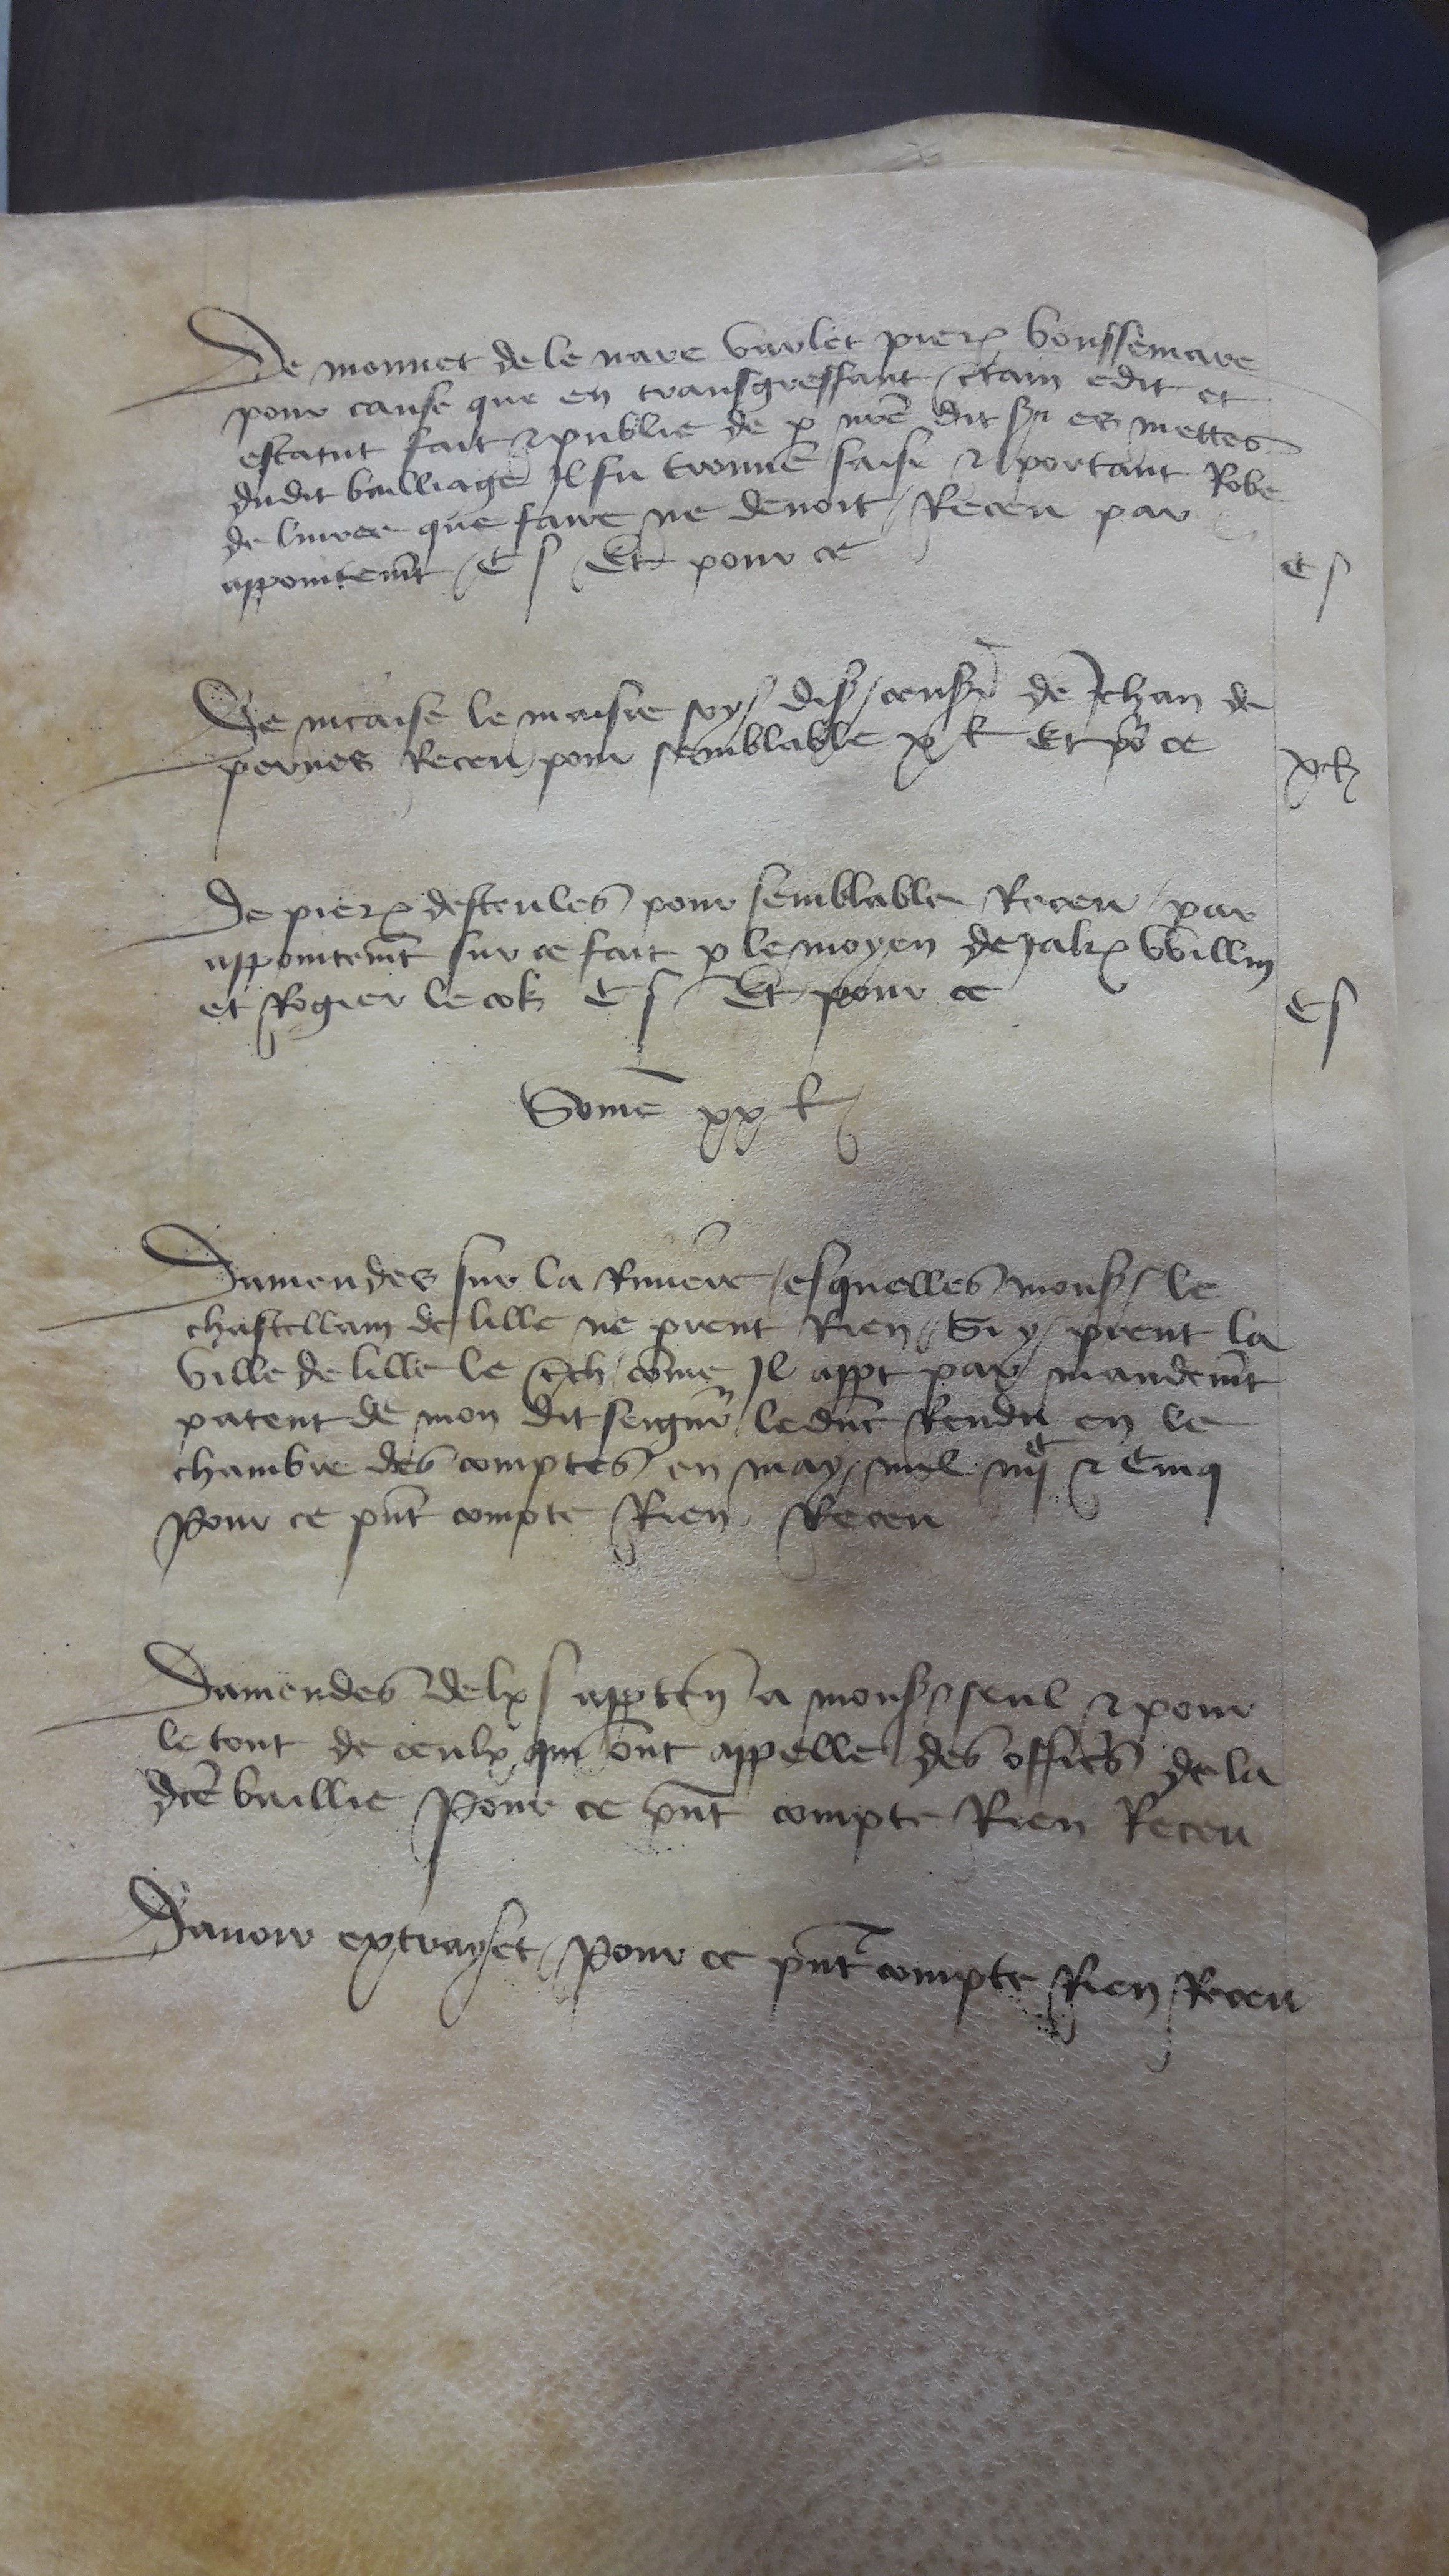 De monnet de le nave varlet pierre boussemare
pour cause que en transgressant ctain edit et
estatut fait & publie de p nre dit sr es mettes
dudit bailliage Il fu trouve saisi & portant Robe
de livree que faire ne devoit Receu par
appointemt C s Et pour ce C s
De nicaise le maisre soy dis censr de Jehan de
pernes Receu pour semblable x lb Et pr ce x lb
De pierre desteules pour semblable Receu par
appointemt sur ce fait p le moyen de Jaks Willin
et Rogier le cok C s Et pour ce C s
Some xx lb
Damendes sur la Riviere esquelles monsr le
chastellain de lille ne prent Rien Si y prent la
ville de lille le come Il appt par mandemt
patent de mon dit seignr le duc Rendu en le
chambre des comptes en may mil iiijc & Cinq
Pour ce pnt compte Rien Receu
Damendes de lx s apptn a monsr seul & pour
le tout de ceulx qui ont appelle des officrs de la
dce baillie Pour ce pnt compte Rien Receu
Davoir extrayet Pour ce pnt compte Rien Receu